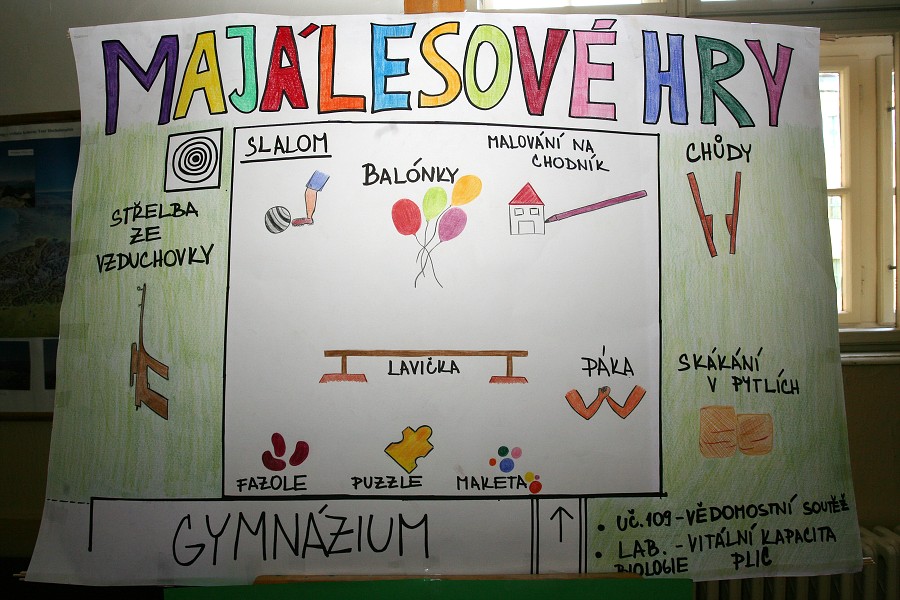 MAJÁLESOVÉ HRY
SLALOM
BALÓNKY
MALOVÁNÍ NA
CHODNÍK
CHŮDY
STŘELBA
ZE
VZDUCHOVKY
LAVIČKA
PÁKA
SKÁKÁNÍ
V PYTLÍCH
FAZOLE
PUZZLE
MAKETA
GYMNÁZIUM
• UČ. 109 - VĚDOMOSTNÍ SOUTĚŽ
• LAB. - VITÁLNÍ KAPACITA
BIOLOGIE PLIC